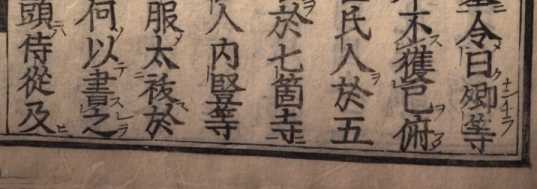 令曰卿等
不獲已俯
氏人於五
於七箇寺
人内竪等
服太祓於
何以書之
頭侍從及